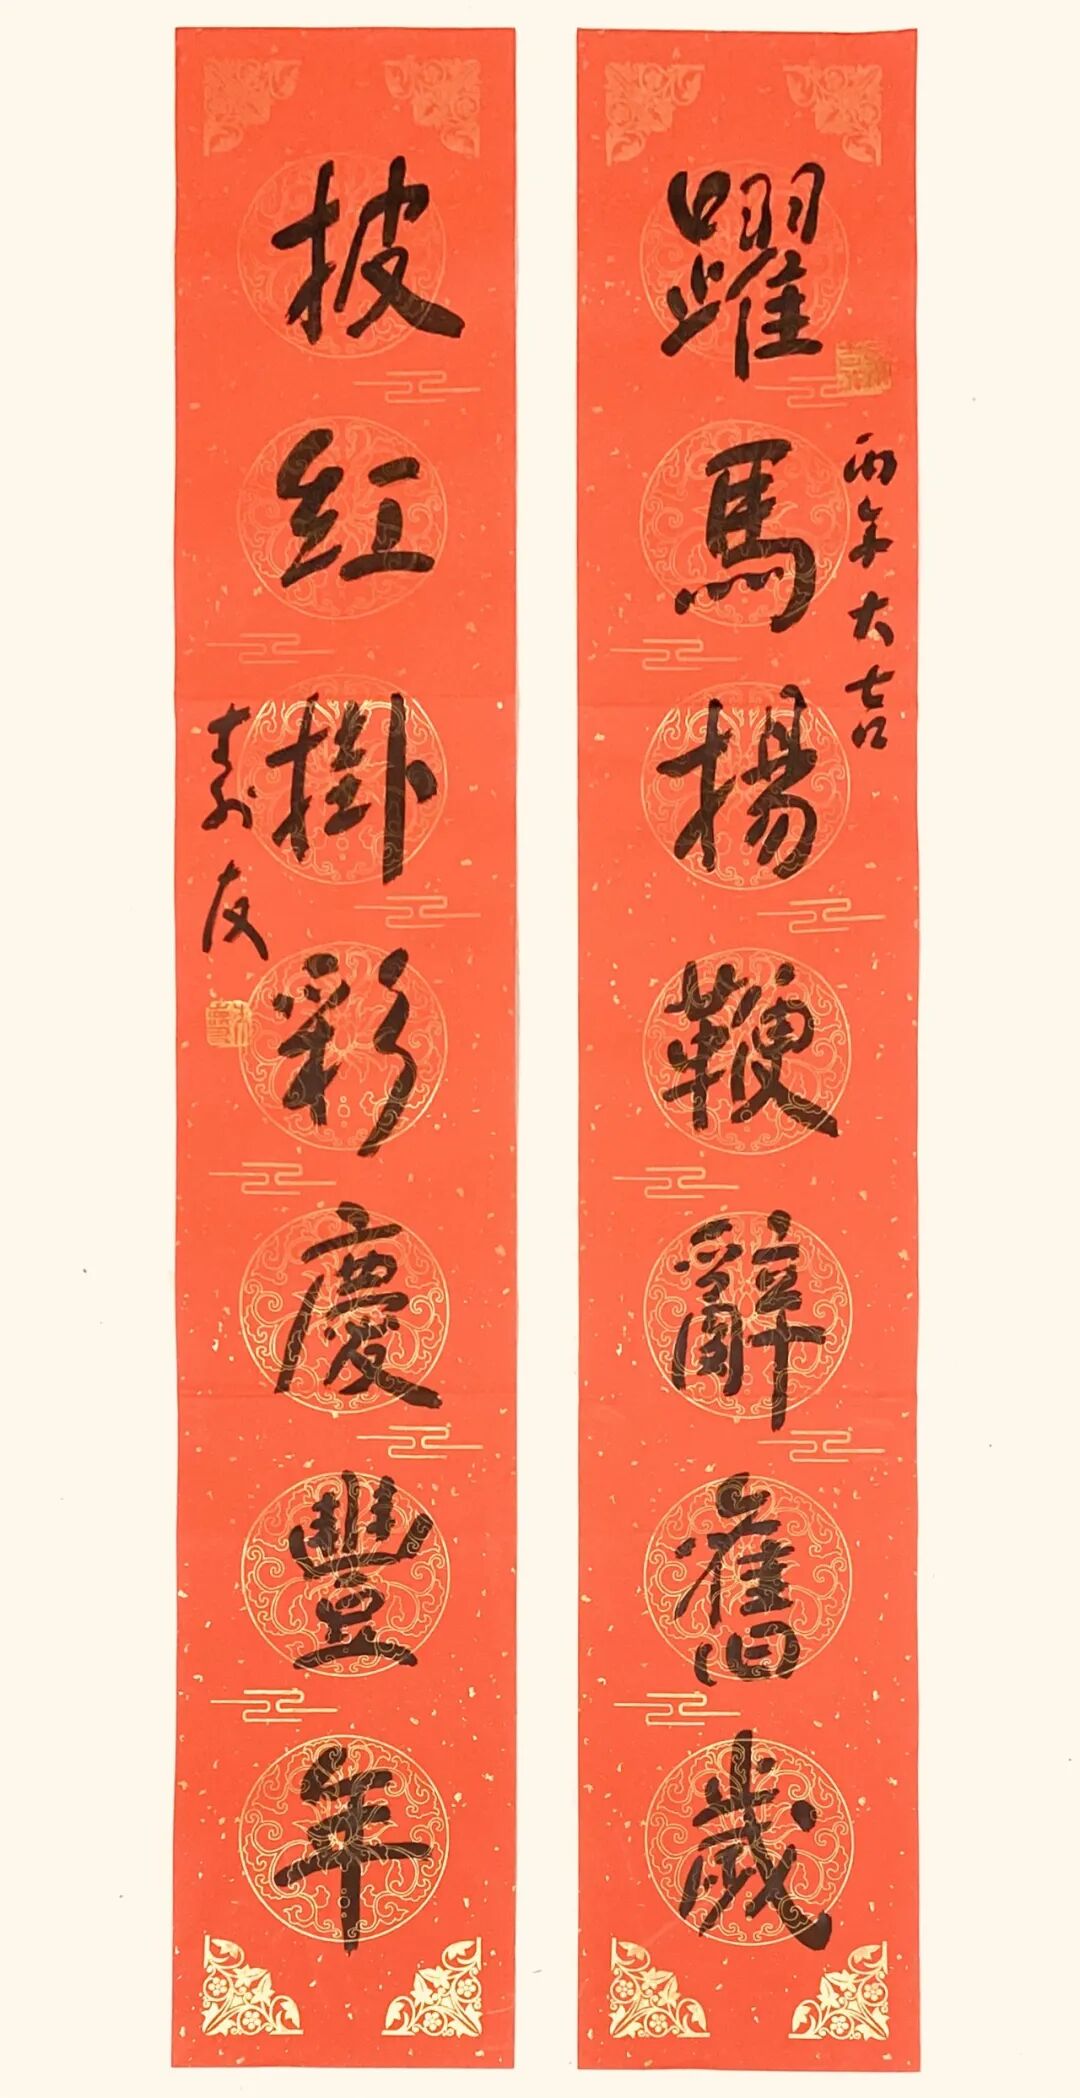 躍馬揚鞭辭舊歲
丙午大吉
披紅掛彩慶豐年
友